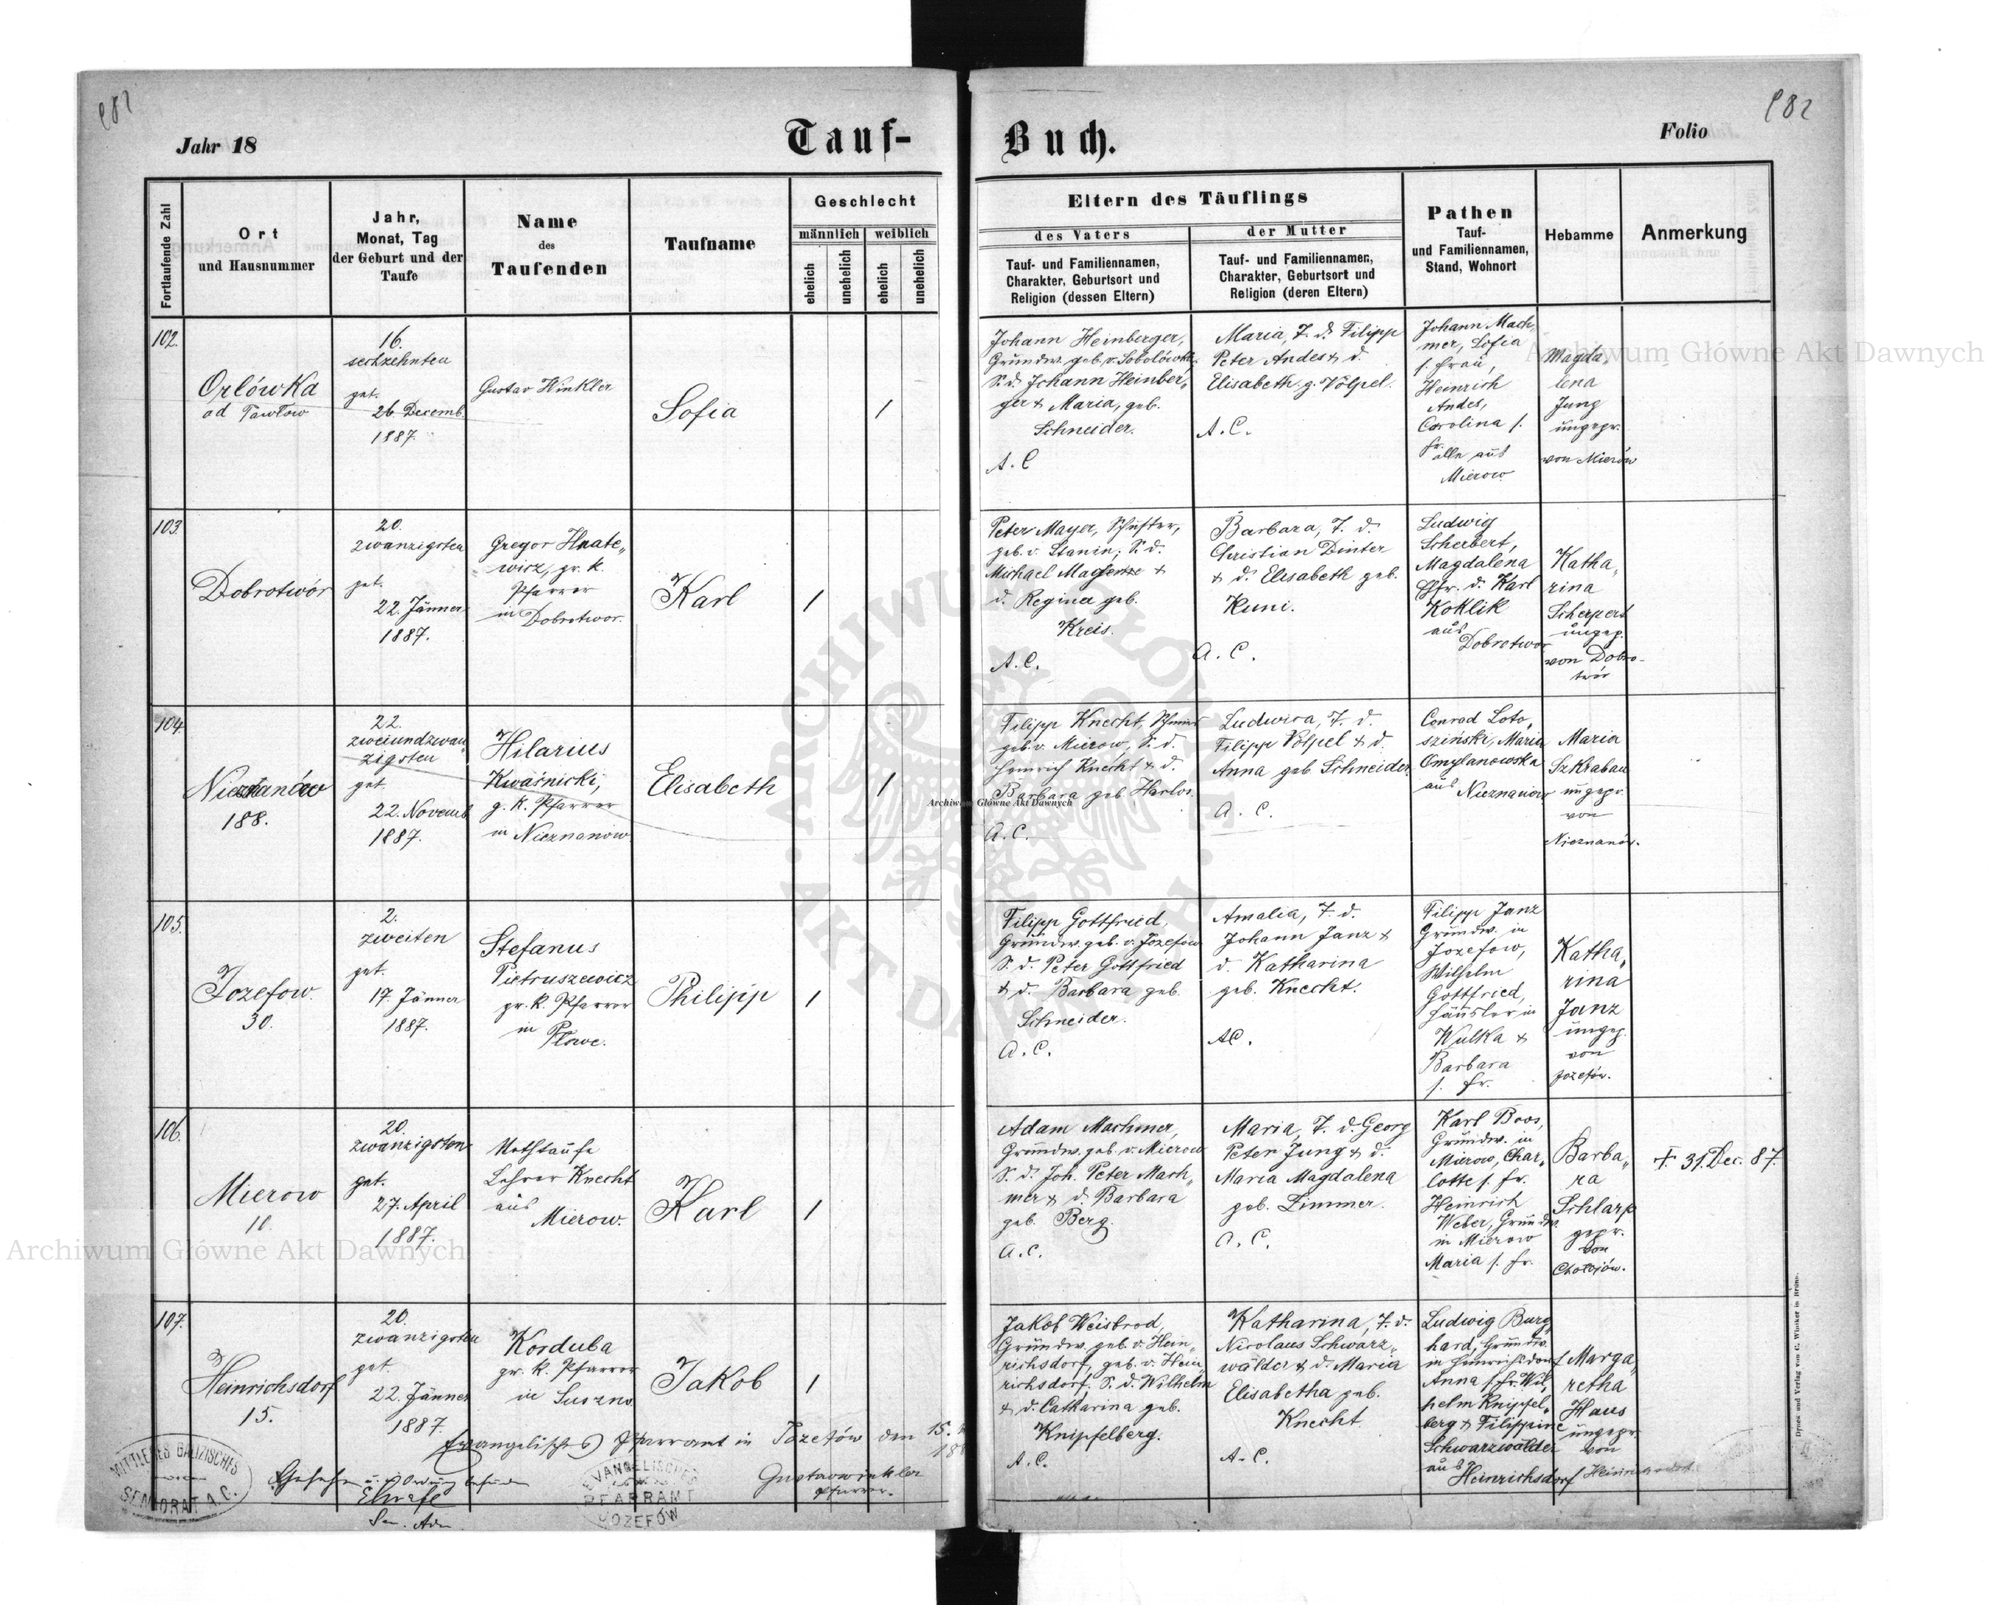 982
982
Jahr 18
Tauf-
Buch.
Folio
Fortlaufende Zahl
Ort
und Hausnummer
Jahr,
Monat, Tag
der Geburt und der
Taufe
Name
des
Taufenden
Taufname
Geschlecht
männlich
weiblich
ehelich
unehelich
ehelich
unehelich
Eltern des Täuflings
des Vaters
Tauf- und Familiennamen,
Charakter, Geburtsort und
Religion (dessen Eltern)
der Mutter
Tauf- und Familiennamen,
Charakter, Geburtsort und
Religion (deren Eltern)
Pathen
Tauf-
und Familiennamen,
Stand, Wohnort
Hebamme
Anmerkung
102.
Orlówka
ad Tawłów
16.
sechzehnten
get.
26. Decemb.
1887.
Gustav Winkler
Sofia
1
Johann Heinberger,
Grundw. geb. v. Sobolówka
S. d. Johann Heinber-
ger & Maria, geb.
Schneider.
A. C
Maria, T. d. Filipp
Peter Andes & d.
Elisabeth g. Völpel.
A. C.
Johann Mach-
mer, Sofia
s. Frau,
Heinrich
Andes,
Carolina s.
Fr.
alle aus
Mierow
Magda-
lena
Jung
ungepr.
von Mierów
103.
Dobrotwór
20.
zwanzigsten
get.
22. Jänner
1887.
Gregor Hnate-
wicz, gr. k.
Pfarrer
in Dobrotwor.
Karl
1
Peter Mayer, Schuster,
geb. v. Stanin; S. d.
Michael &
d. Regina geb.
Kreis.
A. C.
Barbara, T. d.
Christian Dinter
& d. Elisabeth geb.
Kuni.
A. C.
Ludwig
Scherbert,
Magdalena
Gfr. d. Karl
Koklik
aus
Dobrotwor
Katha-
rina
Scherpert
ungep.
von Dobro-
twór
104.
Nieznanów
188.
22.
zweiundzwan-
zigsten
get
22. Novemb
1887.
Hilarius
Kwaśnicki,
g. k. Pfarrer
in Nieznanow.
Elisabeth
1
Filipp Knecht, Schmied
geb. v. Mierow, S. d.
Heinrich Knecht & d.
Barbara geb. Harlos.
A. C.
Ludwica, T. d.
Filipp Völpel & d.
Anna geb. Schneider.
A. C.
Conrad Loto-
sziński, Maria
Omylanowska
aus
Nieznanow
Maria
Szkraban
ungepr.
von
Nieznanów.
105.
Jozefow.
30.
2.
zweiten
get.
17. Jänner
1887.
Stefanus
Pietruszewicz
gr. k. Pfarrer
in
Płowe.
Philipp
1
Filipp Gottfried,
Grundw. geb. v. Jozefow
S. d. Peter Gottfried
& d. Barbara geb.
Schneider.
A. C.
Amalia, T. d.
Johann Janz &
d. Katharina
geb. Knecht.
AC.
Filipp Janz
Grundw. in
Jozefow,
Wilhelm
Gottfried,
Häusler in
Wulka &
Barbara
s. Fr.
Katha-
rina
Janz
ungep.
von
Jozefów.
106.
Mierow
10.
20.
zwanzigsten
get.
27. April
1887.
Nothtaufe
Lehrer Knecht
aus
Mierow.
Karl
1
Adam Machmer,
Grundw. geb. v. Mierow
S. d. Joh. Peter Mach-
mer & d. Barbara
geb. Berg.
A. C.
Maria, T. d. Georg
Peter Jung & d.
Maria Magdalena
geb. Zimmer.
A. C.
Karl Boos,
Grundw. in
Mierow, Char-
lotte s. Fr.
Heinrich
Weber, Grundw.
in Mierow
Maria s. Fr.
Barba-
ra
Schlarp
gepr.
von
Chołojów.
† 31. Dec. 87.
107.
Heinrichsdorf
15.
20.
zwanzigsten
get.
22. Jänner
1887.
Korduba
gr. k. Pfarrer
in Suszno.
Jakob
1
Jakob Weisbrod,
Grundw. geb. v. Hein-
richsdorf, geb. v. Hein-
richsdorf. S. d. Wilhelm
& d. Catharina geb.
Knipfelberg.
A. C.
Katharina, T. d.
Nicolaus Schwarz-
wälder & d. Maria
Elisabetha geb.
Knecht
A. C.
Ludwig Burg-
hard, Grundw.
in Heinrichsdorf
Anna s. Fr. Wil-
helm Knipfel-
berg & Filippine
Schwarzwälder
aus
Heinrichsdorf
Marga-
retha
Haus
ungepr.
von
Heinrichsdorf
Evangelisches Pfarramt in Jozefów den 15.
188
Gesehen u. in Ordnung befunden
Gustav Winkler
Pfarrer.
Sen. Adm
MITTLERES GALIZISCHES
SENIORAT A. C.
EVANGELISCHES
PFARRAMT
JOZEFÓW
Druck und Verlag von C. Winiker in Brünn.
Archiwum Główne Akt Dawnych
Archiwum Główne Akt Dawnych
Archiwum Główne Akt Dawnych
ARCHIWUM GŁÓWNE AKT DAWNYCH